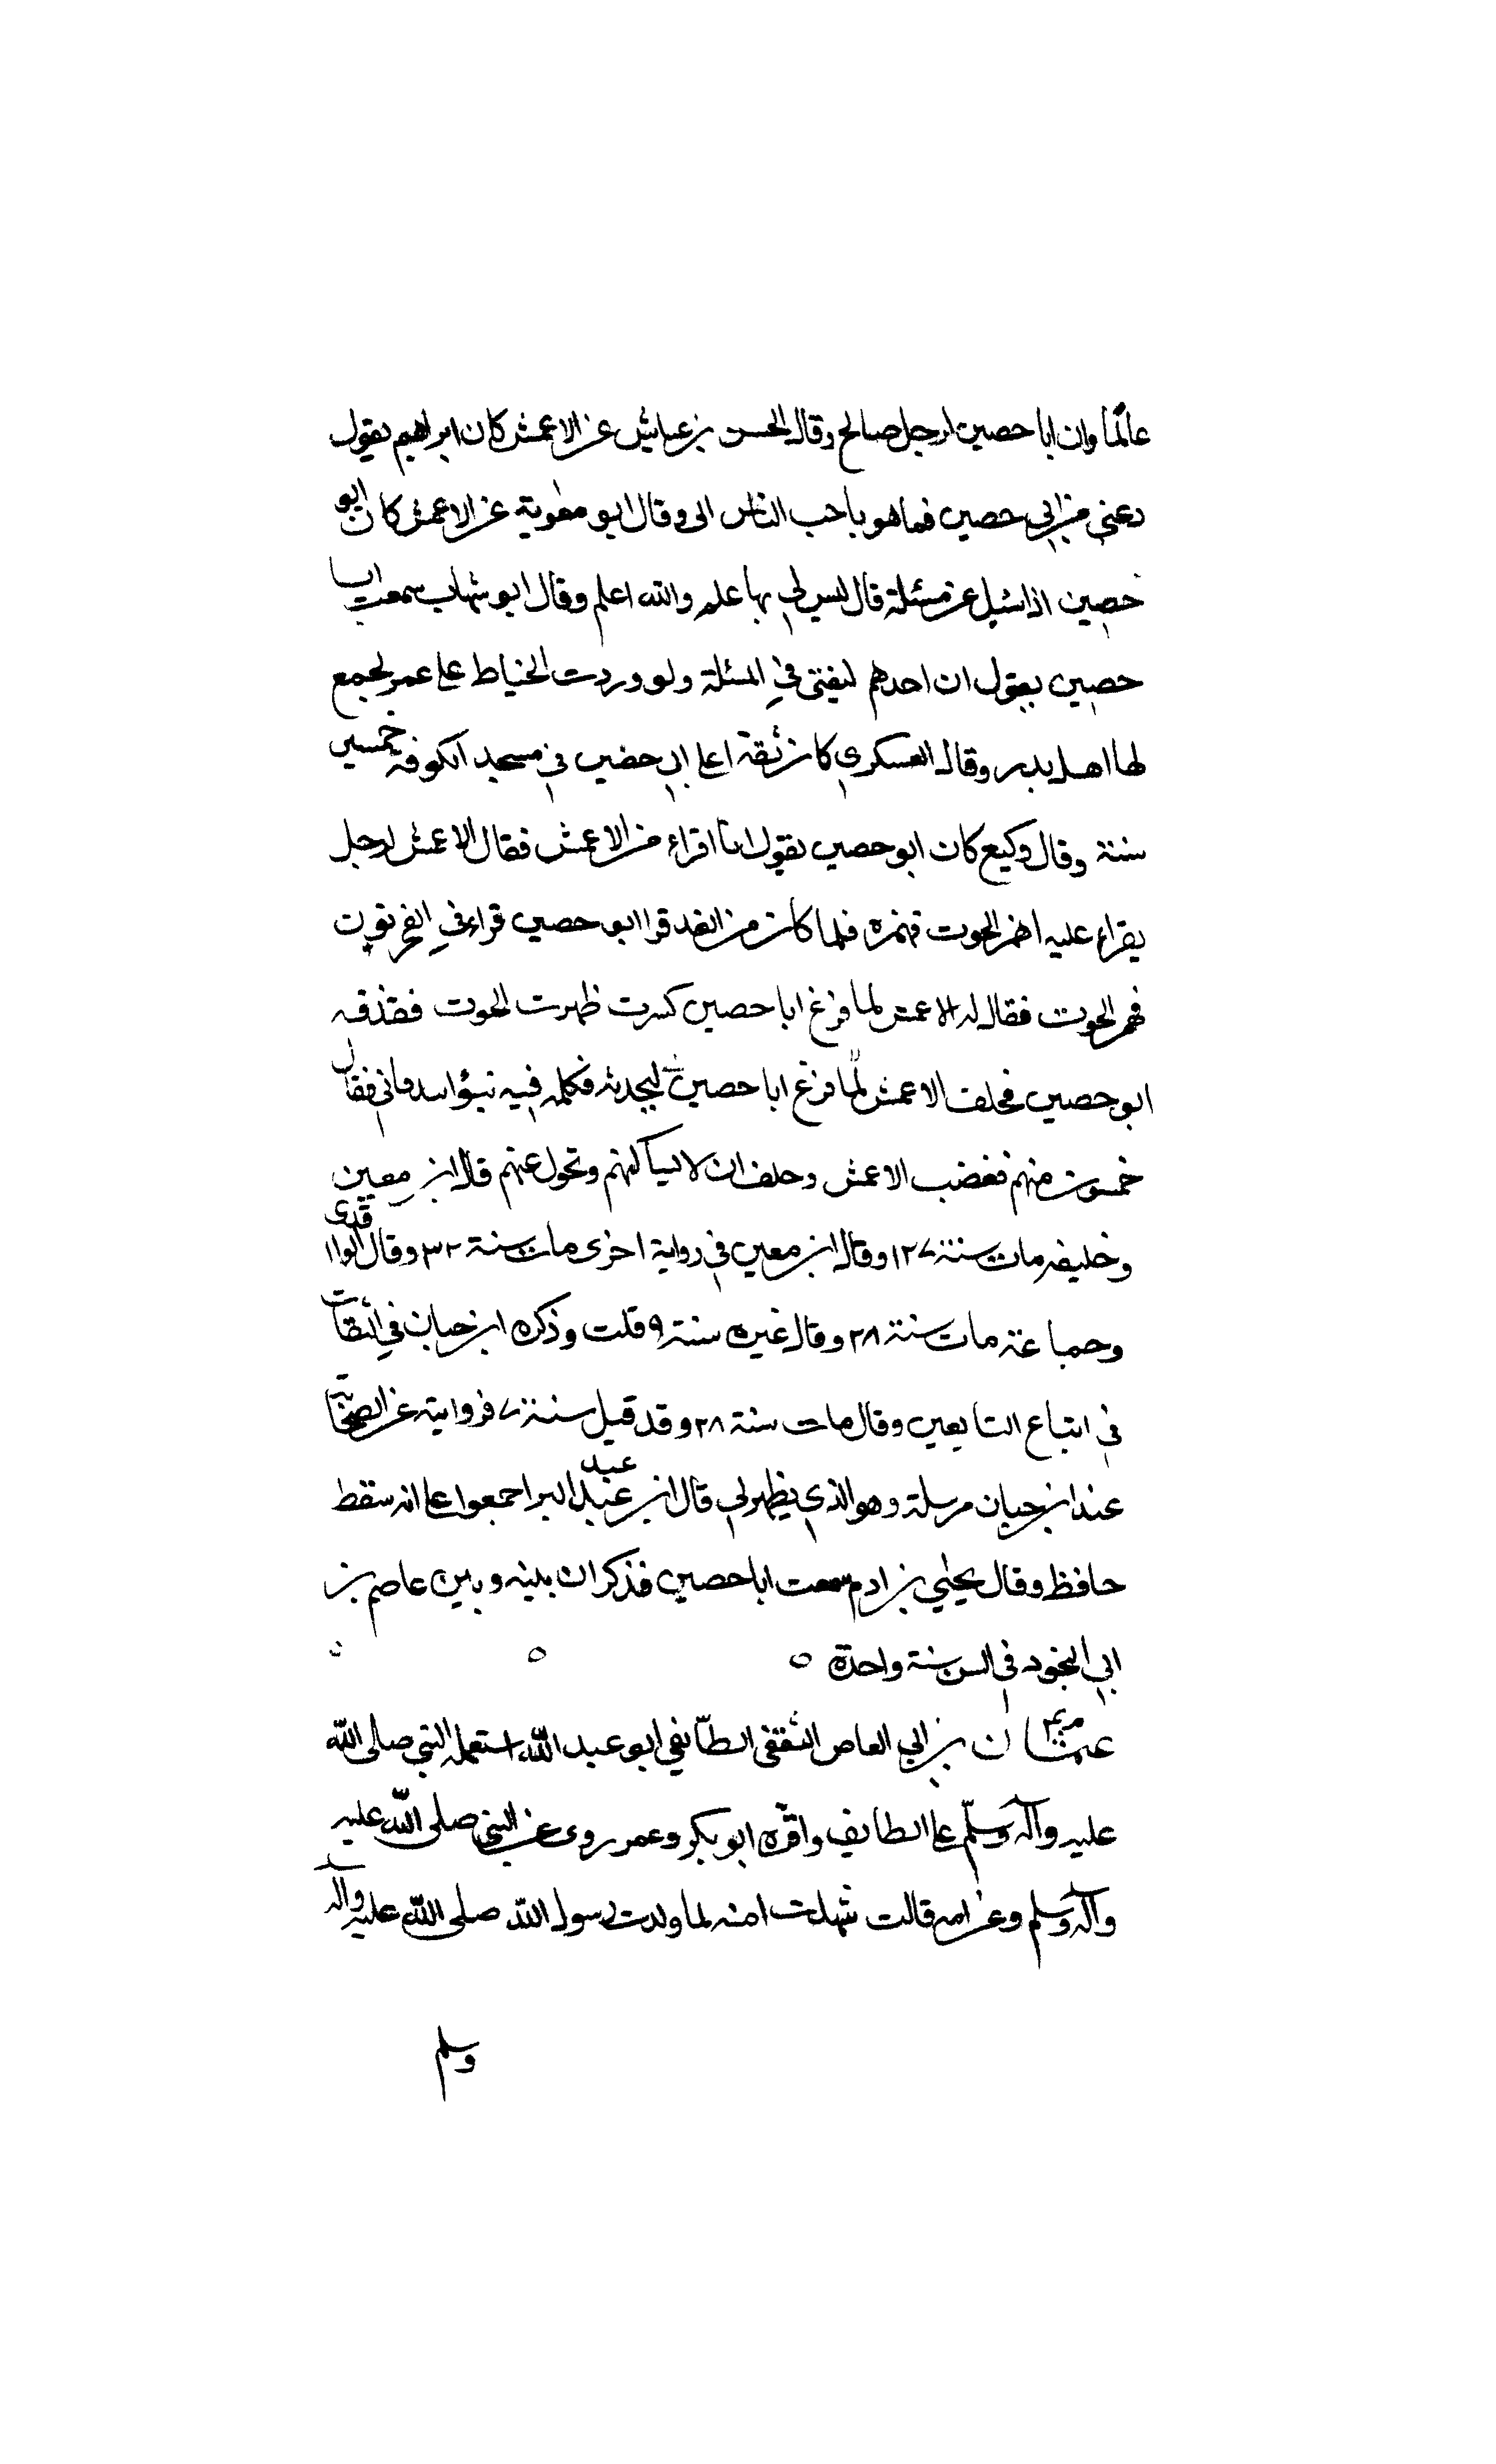 عالمًا وان ابا حصين لرجل صالح وقال الحسن بن عياش عن الاعمش كان ابراهيم يقول
دعني من ابي حصين فما هو باحب الناس الى وقال ابو معوية عن الاعمش كان ابو
حصين اذا سئل عن مسئلة قال ليس لي بها علم والله اعلم وقال ابو شهاب سمعت ابا
حصين يقول ان احدهم ليفتى في المسئلة ولو وردت الخياط على عمر لجمع
لها اهل بدر وقال العسكري كان ثقة ابي حصين في مسجد الكوفة خمسين
سنة وقال وكيع كان ابو حصين يقول انا اقراء من الاعمش فقال الاعمش لرجل
يقراء عليه اهمز الحوت فهمزه فلما كان من الغد قرا ابو حصين قراء في الفجر نون
فهمز الحوت فقال له الاعمش لما فرغ ابا حصين كسرت ظهرت الحوت فقذفه
ابو حصين فحلف الاعمش لما فرغ ابا حصين ليحدنه فكلمه فيه بنو اسد فابى فقال
خمسون منهم فغضب الاعمش وحلف ان لا يساكنهم وتحول عنهم قال ابن معين
وخليفه مات سنة ١٢٧ وقال ابن معين في رواية اخرى مات سنة ٣٢ وقال الواقدى
وجماعة مات سنة ٢٨ وقال غيره سنة ٩ قلت وذكره ابن حبان في الثقات
في اتباع التابعين وقال مات سنة ٢٨ وقد قيل سنة ٧ فروايته عن الصحابة
عند ابن حبان مرسلة وهو الذي يظهر لي قال ابن عبد عبد البر اجمعوا على انه سقط
حافظ وقال يحيي بن ادم سمعت ابا حصين فذكر ان بينه وبين عاصم بن
ابي النجود في السن سنة واحدة ه ه
م ٤ عثمان بن ابي العاص الثقفى الطائفي ابو عبد الله استعمله النبي صلى الله
عليه وآله وسلم على الطايف واقره ابو بكر وعمر روى عن النبي صلى الله عليه
وآله وسلم وعن امه قالت شهدت امنه لما ولدت رسول الله صلى الله عليه وآله
وسلم